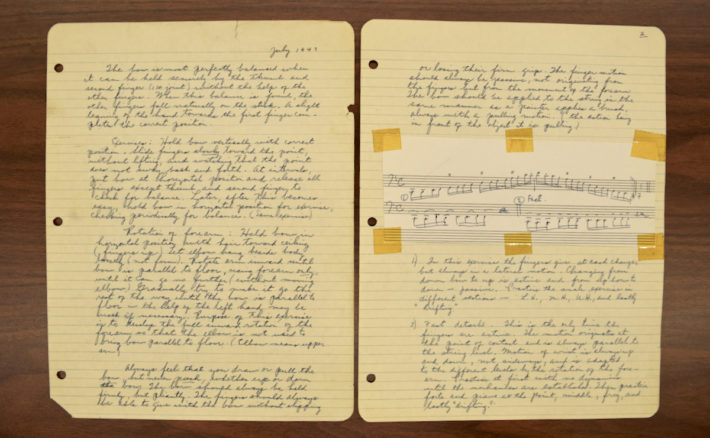 July 1947
The bow is most perfectly balanced when
it can be held securely by the thumb and
second finger (1st joint) without the help of the
other fingers. When this balance is found, the
other fingers fall naturally on the stick. A slight
leaning of the hand towards the first finger com-
pletes the correct position.
Exercise: Hold bow vertically with correct
position. Slide fingers slowly toward the point,
without lifting, and watching that the point
does not sway back and forth. At intervals,
put bow at horizontal position and release all
fingers except thumb and second finger to
check for balance. Later, after this becomes
easy, hold bow in horizontal position for exercise,
checking periodically for balance. (Same exercise)
Rotation of forearm: Hold bow in
horizontal position with hair toward ceiling
(fingers up) let elbow hang beside body
loosely (not firm). Rotate arm inward until
bow is parallel to floor, using forearm only
until it can go no further (without moving
elbow). Gradually try to make it go the
rest of the way until the bow is parallel to
floor. The help of the left hand may be
used if necessary. Purpose of this exercise
is to develop the full inward rotation of the
forearm so that the elbow is not used to
bring bow parallel to floor. (Elbow means upper
arm)
Always feel that you draw or pull the
bow but never push, whether up or down
the bow. The bow should always be held
firmly, but gently. The fingers should always
be able to give with the bow without slipping
2
or losing their firm grip. The finger motion
should always be passive, not originating from
the fingers but from the movement of the forearm.
The bow should be applied to the string in the
same manner as a painter applies a brush,
always with a pulling motion. (the
in front of the object it is pulling)
Fast
1) In this exercise the fingers give at each change,
but always in a lateral motion. Changing from
down bow to up is active and from up bow to
down is passive. Practice the
different sections — L.H., M., U.H., and lastly
"drifting"
2) Fast detaché — This is the only time the
fingers are active. The motion originates at
the point of contact and is always parallel to
the string
up and down, not sideways, and is adapted
to the different levels by the rotation of the fore-
arm. Practice at first with no dynamics
until the
forte and piano at the point, middle, frog, and
lastly "drifting."